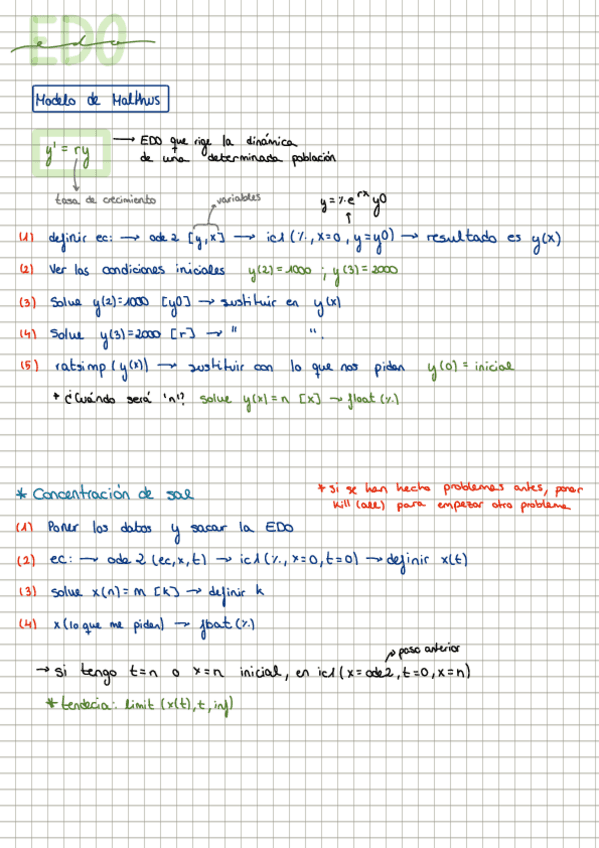 EDO
edo
Modelo de Malthus
y' = ry → EDO que rige la dinámica
de una determinada población
tasa de crecimiento
variables
y = %e^rx y0
(1) definir ec: → ode2 [y,x] → ic1 (%, x=0, y=y0) → resultado es y(x)
(2) Ver las condiciones iniciales y(2)=1000 ; y(3)=2000
(3) Solve y(2)=1000 [y0] → sustituir en y(x)
(4) Solve y(3)=2000 [r] → " ".
(5) ratsimp(y(x)) → sustituir con lo que nos pidan y(0) = inicial
* ¿Cuándo será 'n'? solve y(x)=n [x] → float(%)
* Concentración de sal
* si se han hecho problemas antes, poner
kill(all) para empezar otro problema
(1) Poner los datos y sacar la EDO
(2) ec: → ode2 (ec,x,t) → ic1(%, x=0, t=0) → definir x(t)
(3) solve x(n)=m [k] → definir k
(4) x(lo que me piden) → float(%)
paso anterior
→ si tengo t=n o x=n inicial, en ic1(x=ode2, t=0, x=n)
* tendecia: limit (x(t), t, inf)